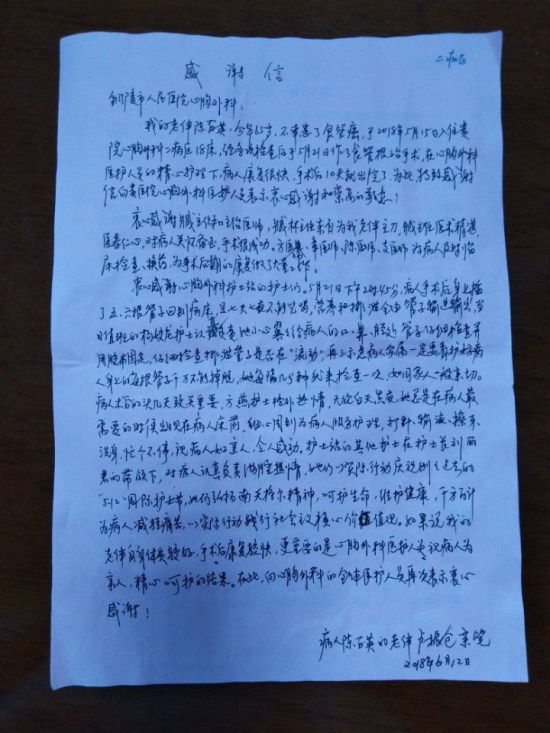 二病区
感谢信
人民医院心胸外科:
我的老伴陈百英,今年65岁,不幸患了食管癌,于2018年5月15日入住贵
院心胸外科二病区18床,经各项检查后于5月21日作了食管根治手术,在心胸外科
医护人员的精心护理下,病人康复很快,手术后10天就出院了。为此,特致感谢
信向贵医院心胸外科医护人员表示衷心感谢和崇高的敬意!
衷心感谢臧主任和主治医师,臧林主任亲自为我老伴主刀,臧主任医术精湛,
医者仁心,对病人关怀备至,手术很成功。方医师、章医师、陈医师、支医师为病人及时临
床检查、换药,为手术后期的康复做了大量工作。
衷心感谢心胸外科护士站的护士们。5月21日下午2时45分,病人手术后身上插
了五、六根管子回到病床,且七天七夜不能出喝,营养和排泄全由管子输进输出,当
日值班的杨护士认真负责,她小心翼翼给病人的口、鼻、腹处管子仔细检查并
用胶布固定,仔细检查排泄管子是否在“流动”,再三示意病人家属一定要看护好病
人身上的每根管子千万不能掉脱,她每隔几分钟就来检查一次,如同家人一般亲切。
病人术后的头几天致关重要,方燕护士格外热情,无论白天黑夜,她总是在病人最
需要的时候出现在病人床前,细心周到为病人服务护理,打针、输液、擦来、
洗身,忙个不停,视病人如亲人,令人感动。护士站的其他护士在护士长刘丽
君的带领下,对病人认真负责、满腔热情,她们以实际行动庆祝刚刚过去的
“5.12”国际护士节,她们弘扬南丁格尔精神,呵护生命,维护健康,千方百计
为病人减轻痛苦,以实际行动践行社会主义核心价值观。如果说我的
老伴自身体质较好,手术后康复较快,更重要的是心胸外科医护人员视病人为
亲人,精心呵护的结果。在此,向心胸外科的全体医护人员再次表示衷心
感谢!
病人陈百英的老伴 卢根仓 亲笔
2018年6月12日